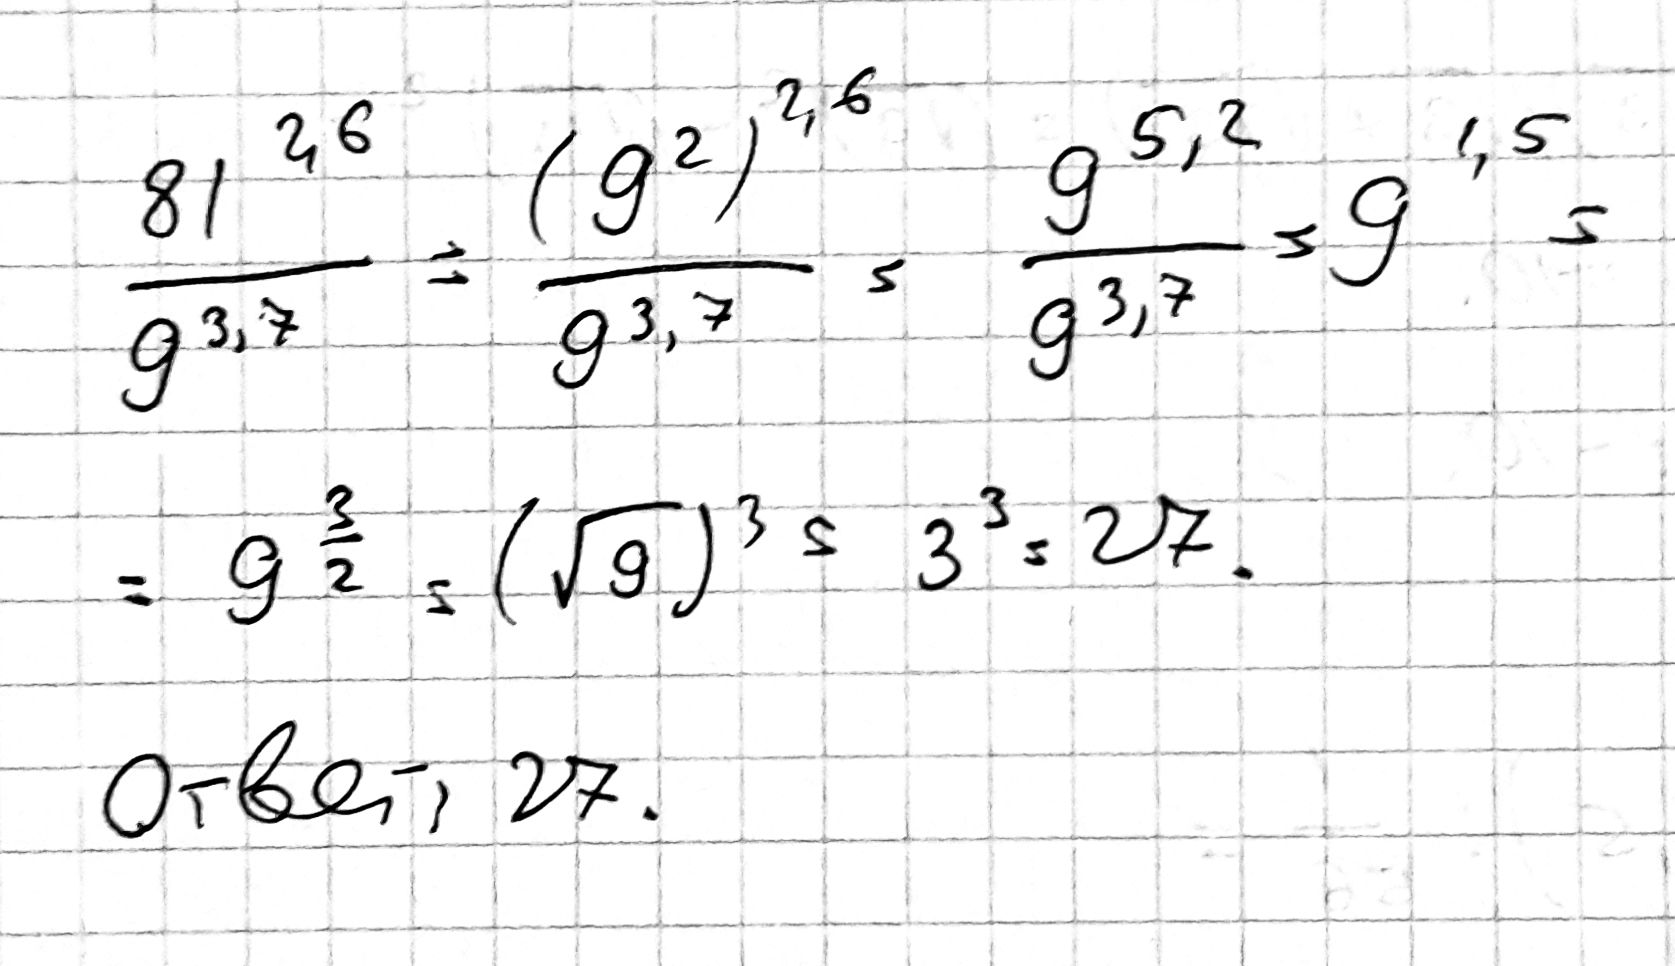 81^{2,6} / 9^{3,7} = (9^2)^{2,6} / 9^{3,7} = 9^{5,2} / 9^{3,7} = 9^{1,5} =
= 9^{3/2} = (√9)^3 = 3^3 = 27.
Ответ: 27.